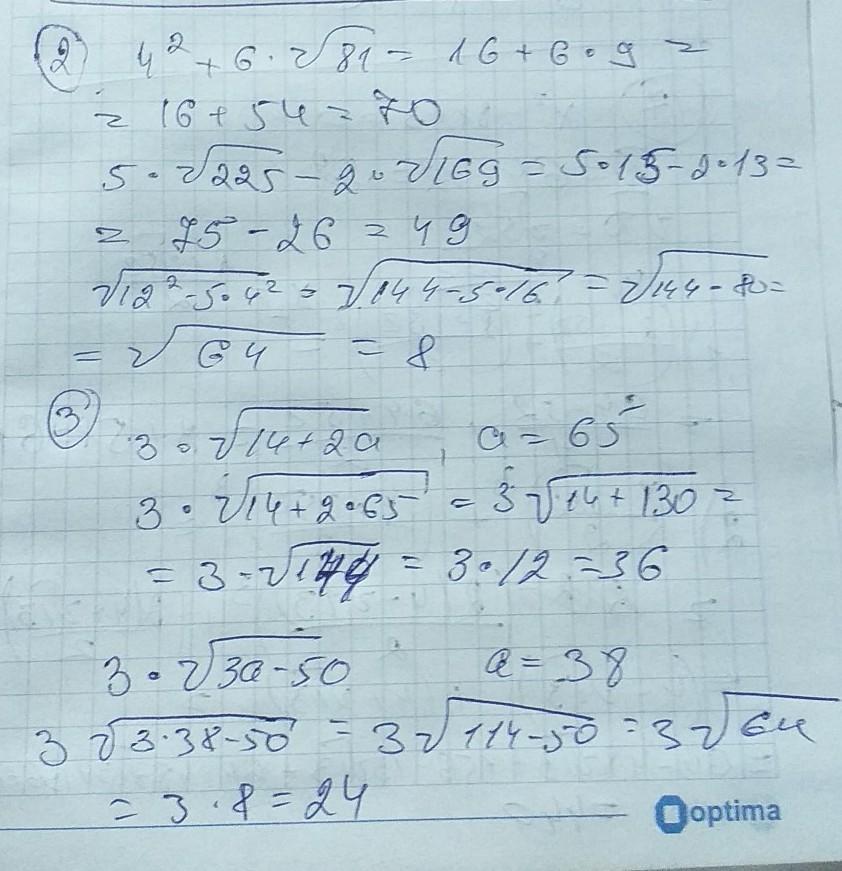 ② 4² + 6 · √81 = 16 + 6 · 9 =
= 16 + 54 = 70
5 · √225 - 2 · √169 = 5 · 15 - 2 · 13 =
= 75 - 26 = 49
√12² - 5 · 4² = √144 - 5 · 16 = √144 - 80 =
= √64 = 8
③ 3 · √14 + 2a , a = 65
3 · √14 + 2 · 65 = 3√14 + 130 =
= 3 · √144 = 3 · 12 = 36
3 · √3a - 50 a = 38
3 √3 · 38 - 50 = 3√114 - 50 = 3√64
= 3 · 8 = 24
optima